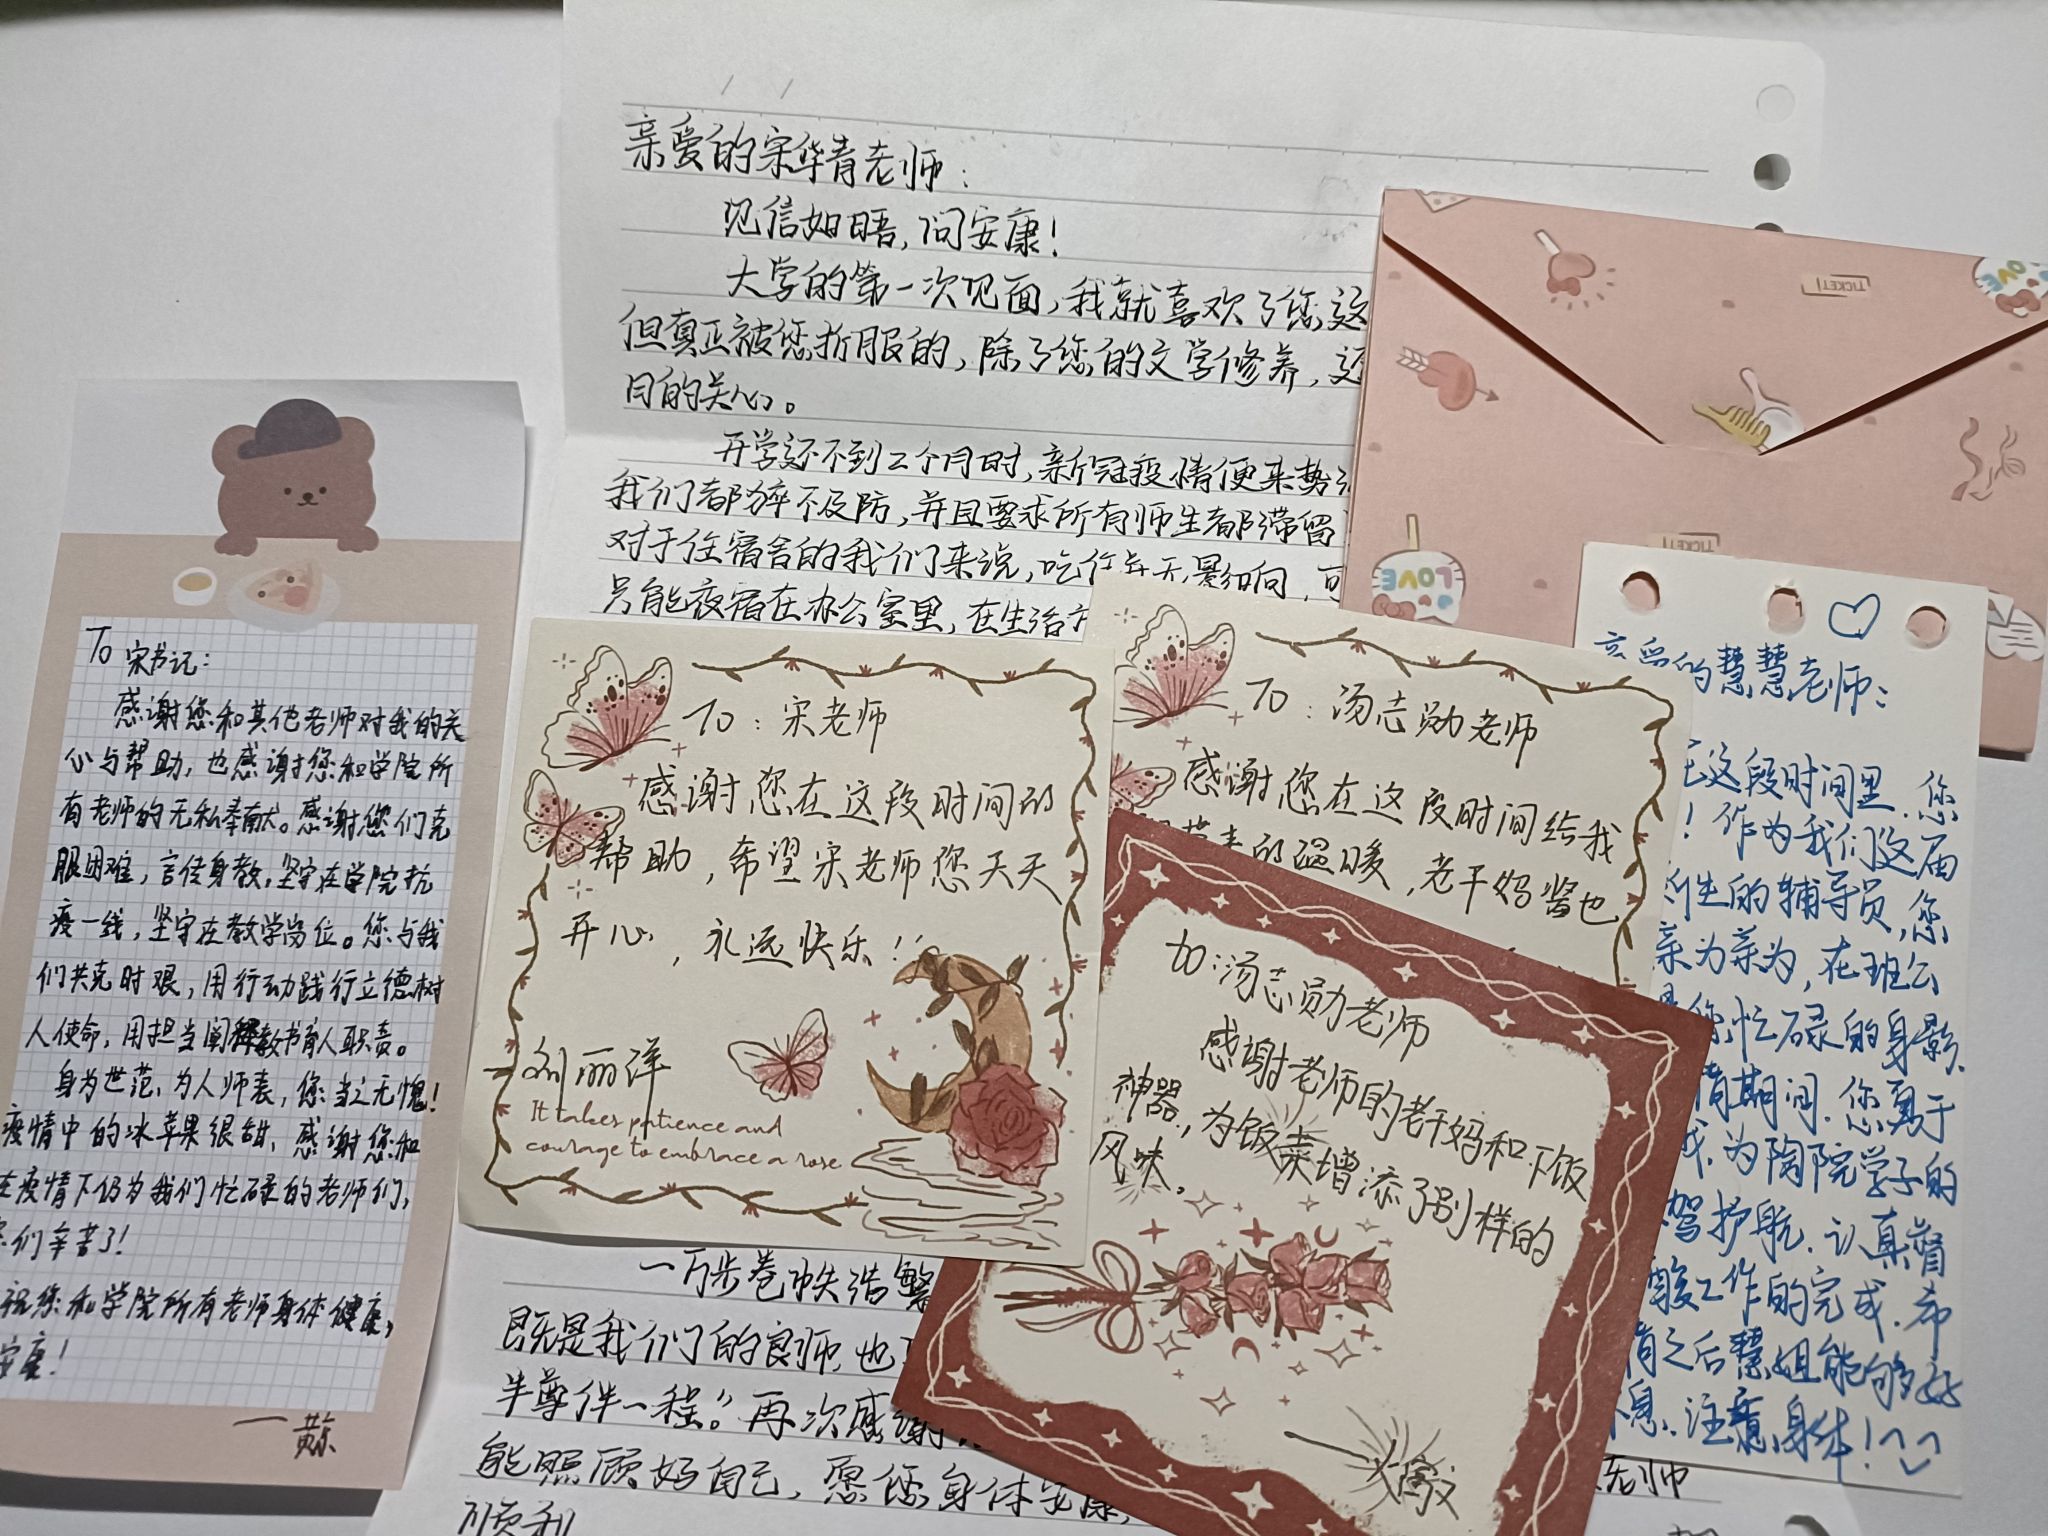 亲爱的宋华青老师:
见信如晤,问安康!
大学的第一次见面,我就喜欢了您这
但真正被您折服的,除了您的文学修养,还
目的关心。
开学还不到2个月时,新冠疫情便来势
我们都猝不及防,并且要求所有师生都滞留
对于住宿舍的我们来说,吃住并无影响,可
只能夜宿在办公室里,在生活方
一万步卷帙浩繁
既是我们的良师,也
半尊伴一程。"再次感谢
能照顾好自己,愿您身体安康,
顺利
To 宋书记:
感谢您和其他老师对我的关
心与帮助,也感谢您和学院所
有老师的无私奉献。感谢您们克
服困难,言传身教,坚守在学院抗
疫一线,坚守在教学岗位。您与我
们共克时艰,用行动践行立德树
人使命,用担当阐释教书育人职责。
身为世范,为人师表,您当之无愧!
疫情中的冰苹果很甜,感谢您和
在疫情下仍为我们忙碌的老师们,
您们辛苦了!
祝您和学院所有老师身体健康,
安康!
To:宋老师
感谢您在这段时间的
帮助,希望宋老师您天天
开心,永远快乐!
刘丽洋
It takes patience and
courage to embrace a rose
To:汤志勋老师
感谢您在这段时间给我
的温暖,老干妈酱也
to:汤志勋老师
感谢老师的老干妈和下饭
神器,为饭菜增添了别样的
风味。
TICKET
LOVE
TICKET
LOVE
亲爱的慧慧老师:
在这段时间里,您
!作为我们这届
新生的辅导员,您
亲为亲为,在班公
您忙碌的身影,
情期间,您勇于
成为陶院学子的
驾护航,认真督
酸工作的完成,希
情之后慧姐能够好
息,注意身体!^^
老师